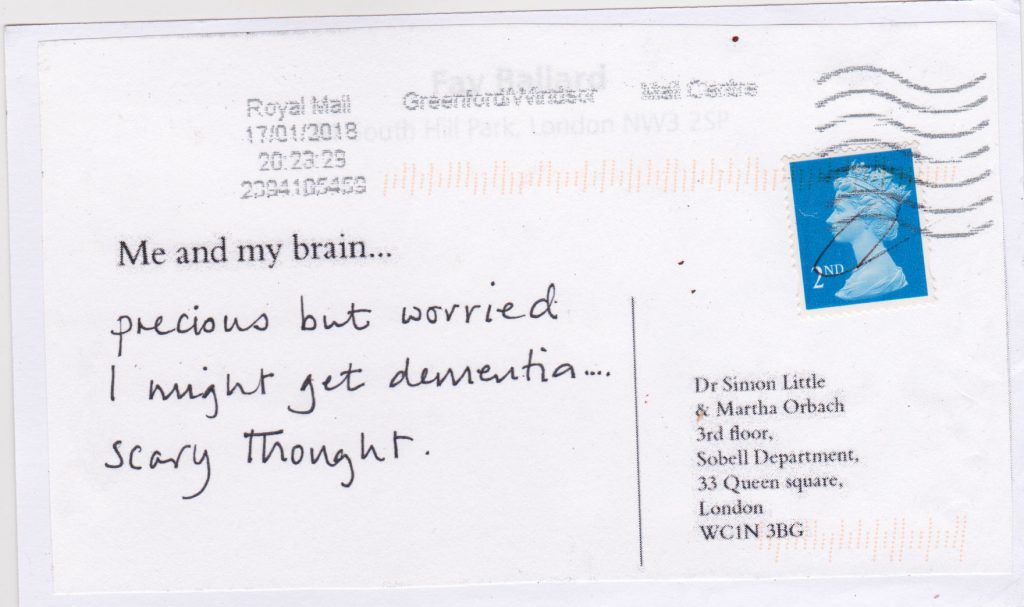 Fay Ballard
South Hill Park, London NW3 2SP
Royal Mail Greenford/Windsor Mail Centre
17/01/2018
20:23:29
2394105459
2ND
Me and my brain...
precious but worried
I might get dementia....
scary thought.
Dr Simon Little
& Martha Orbach
3rd floor,
Sobell Department,
33 Queen square,
London
WC1N 3BG